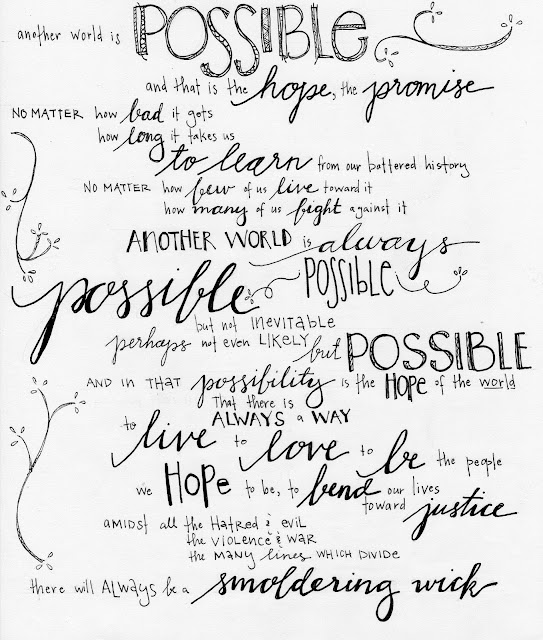 another world is POSSIBLE
and that is the hope, the promise
NO MATTER how bad it gets
how long it takes us
to learn from our battered history
NO MATTER how few of us live toward it
how many of us fight against it
ANOTHER WORLD is always
possible POSSIBLE
but not INEVITABLE
perhaps not even LIKELY
but POSSIBLE
AND IN THAT possibility is the HOPE of the world
That there is
ALWAYS a WAY
to live to love to be the people
we HOPE to be, to bend our lives
toward justice
AMIDST all the HATRED & EVIL
the VIOLENCE & WAR
the MANY lines WHICH DIVIDE
there will ALWAYS be a smoldering wick